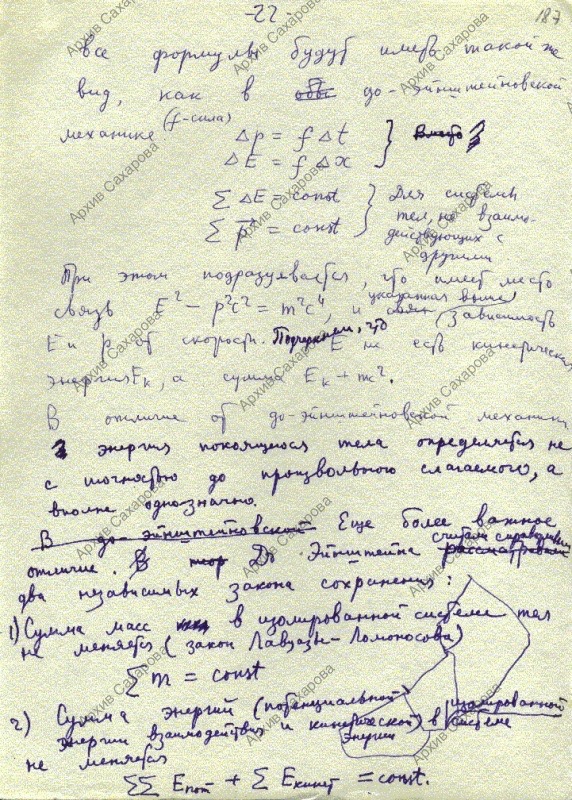 -22-
187
все формулы будут иметь такой же
вид, как в до-эйнштейновской
механике (f-сила)
Δp = f Δt
ΔE = f Δx
Вместо
∑ ΔE = const
∑ p⃗ = const
Для системы
тел, не взаимо-
действующих с
другими
При этом подразумевается, что имеет место
связь E² − p²c² = m²c⁴, и указанная выше зависимость
E и p от скорости. Подчеркнем, что E не есть кинетическая
энергия Eк, а сумма Eк + mc².
В отличие от до-эйнштейновской механики
энергия покоящегося тела определяется не
с точностью до произвольного слагаемого, а
вполне однозначно.
В до-эйнштейновской Еще более важное
отличие. До Эйнштейна считали справедливыми рассматривали
два независимых закона сохранения:
1) Сумма масс в изолированной системе тел
не меняется (закон Лавуазье-Ломоносова)
∑ m = const
2) Сумма энергий (потенциальной
энергии взаимодействия и кинетической энергии) в изолированной системе
не меняется
∑∑ Eпот + ∑ Eкинет = const.
Архив Сахарова